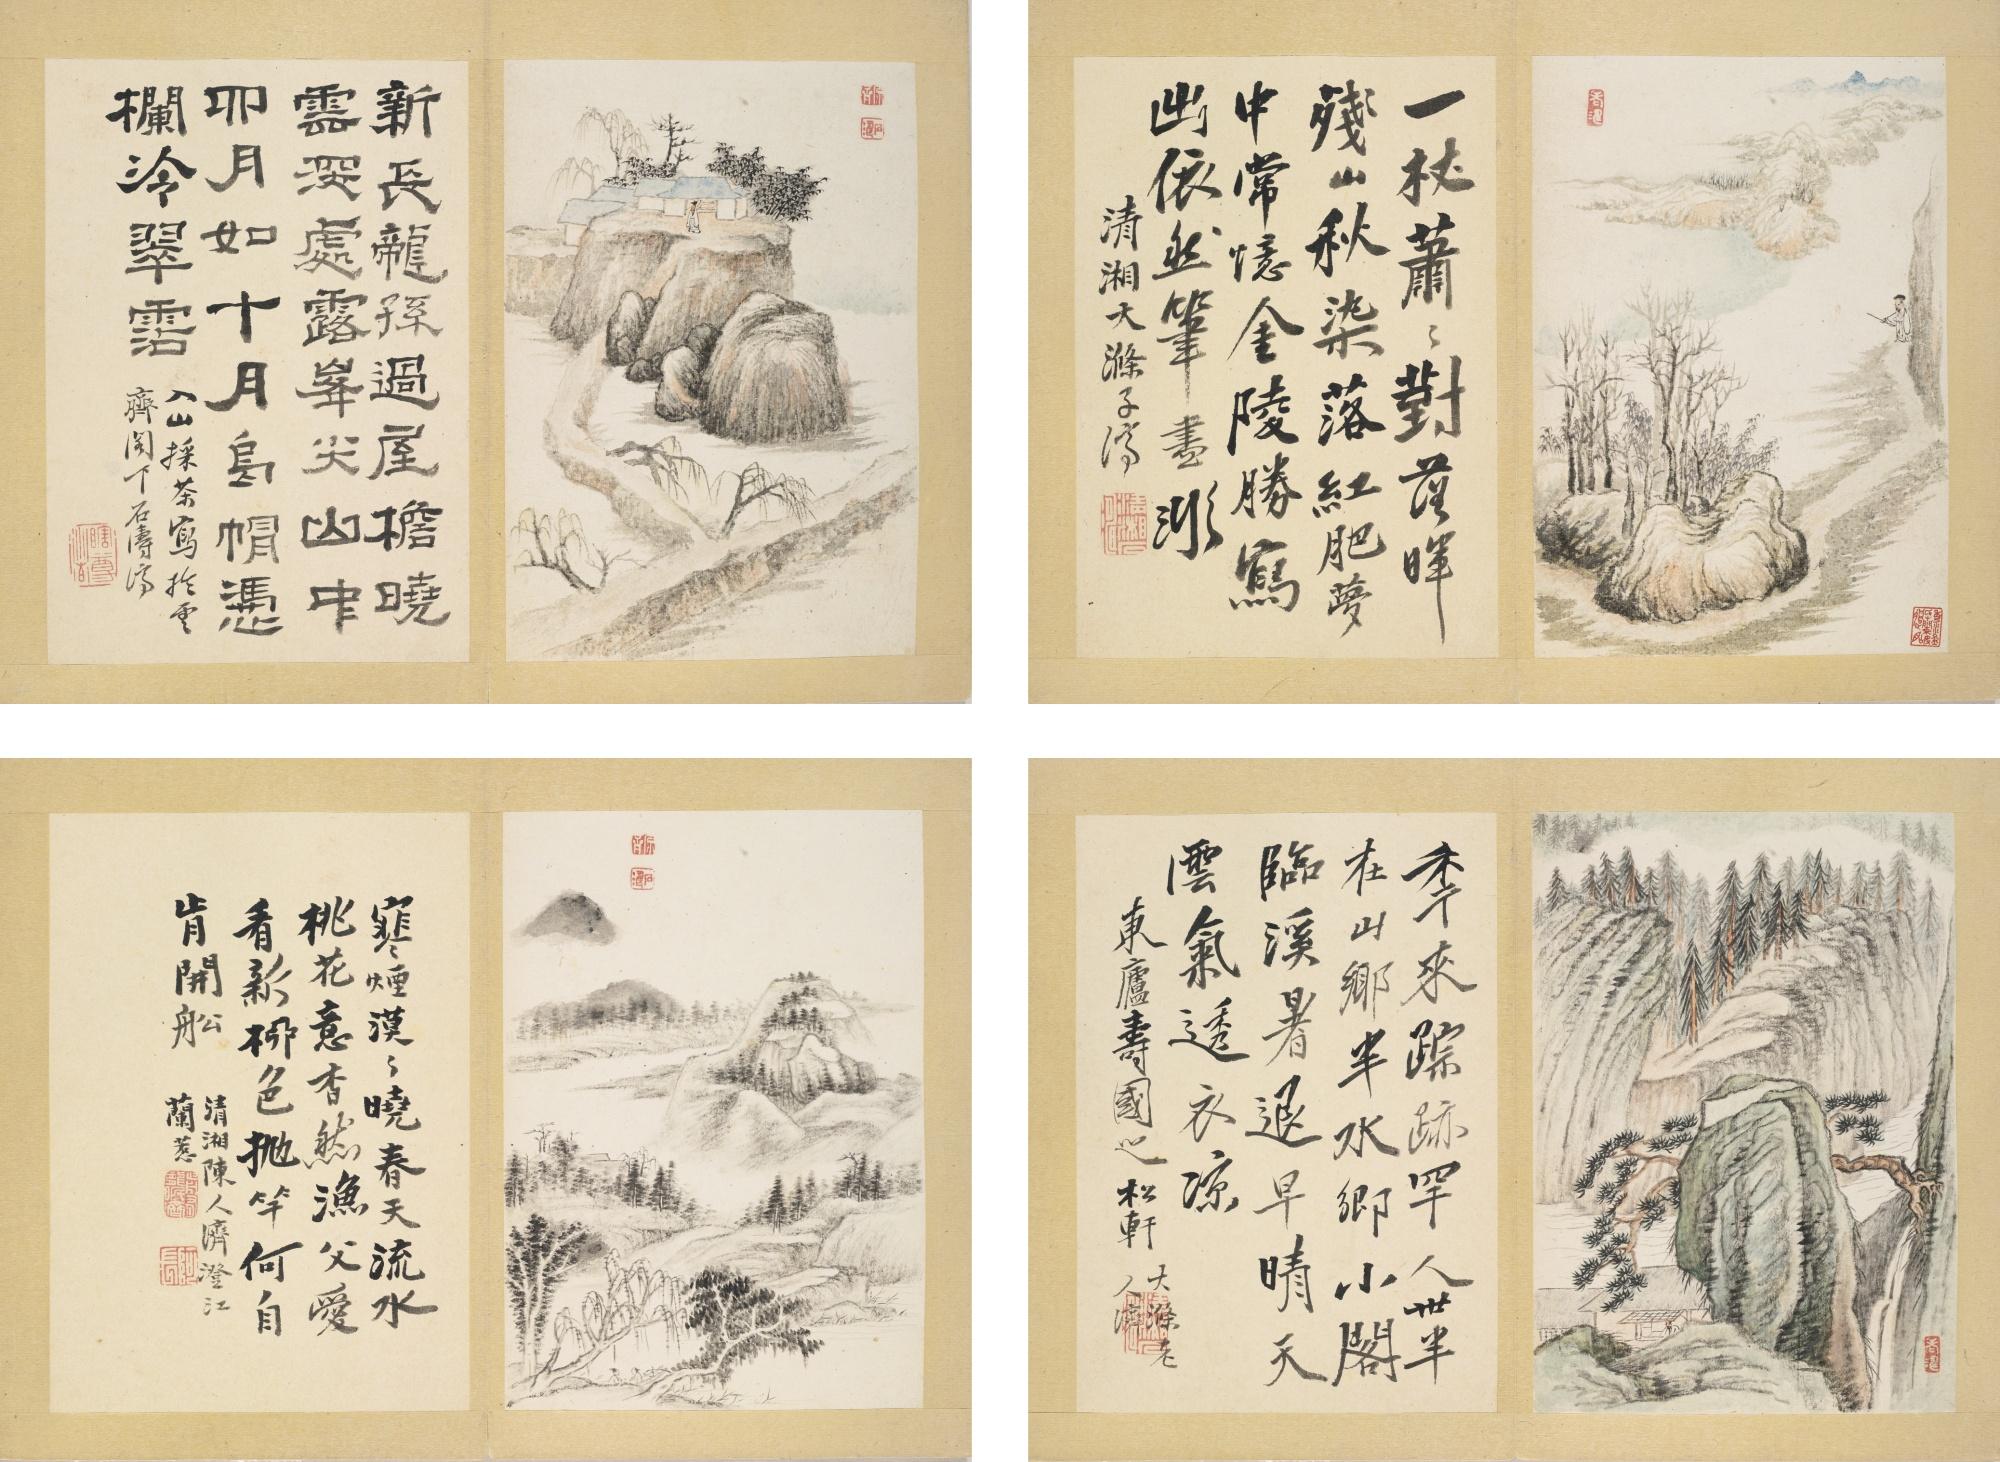 新長龍孫過屋檐曉
雲深處露峯尖山中
四月如十月烏帽憑
欄冷翠霑
入山採茶寫於雲
齊閣下石濤濟
一杖蕭〻對落暉
殘山秋染落紅肥夢
中常憶金陵勝寫
出依然筆畫彫
清湘大滌子濟
寒煙漠〻曉春天流水
桃花意杳然漁父愛
看新柳色拋竿何自
肯開船
清湘陳人濟澄江
蘭蕙
季來踪跡罕人世半
在山鄉半水鄉小閣
臨溪暑退早晴天
雲氣透衣涼
東廬壽國之松軒
大滌老
人濟